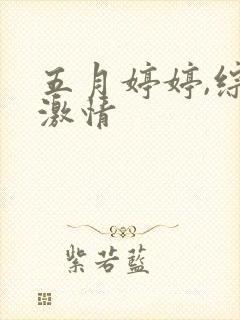 五月婷婷,综
激情
紫若蓝